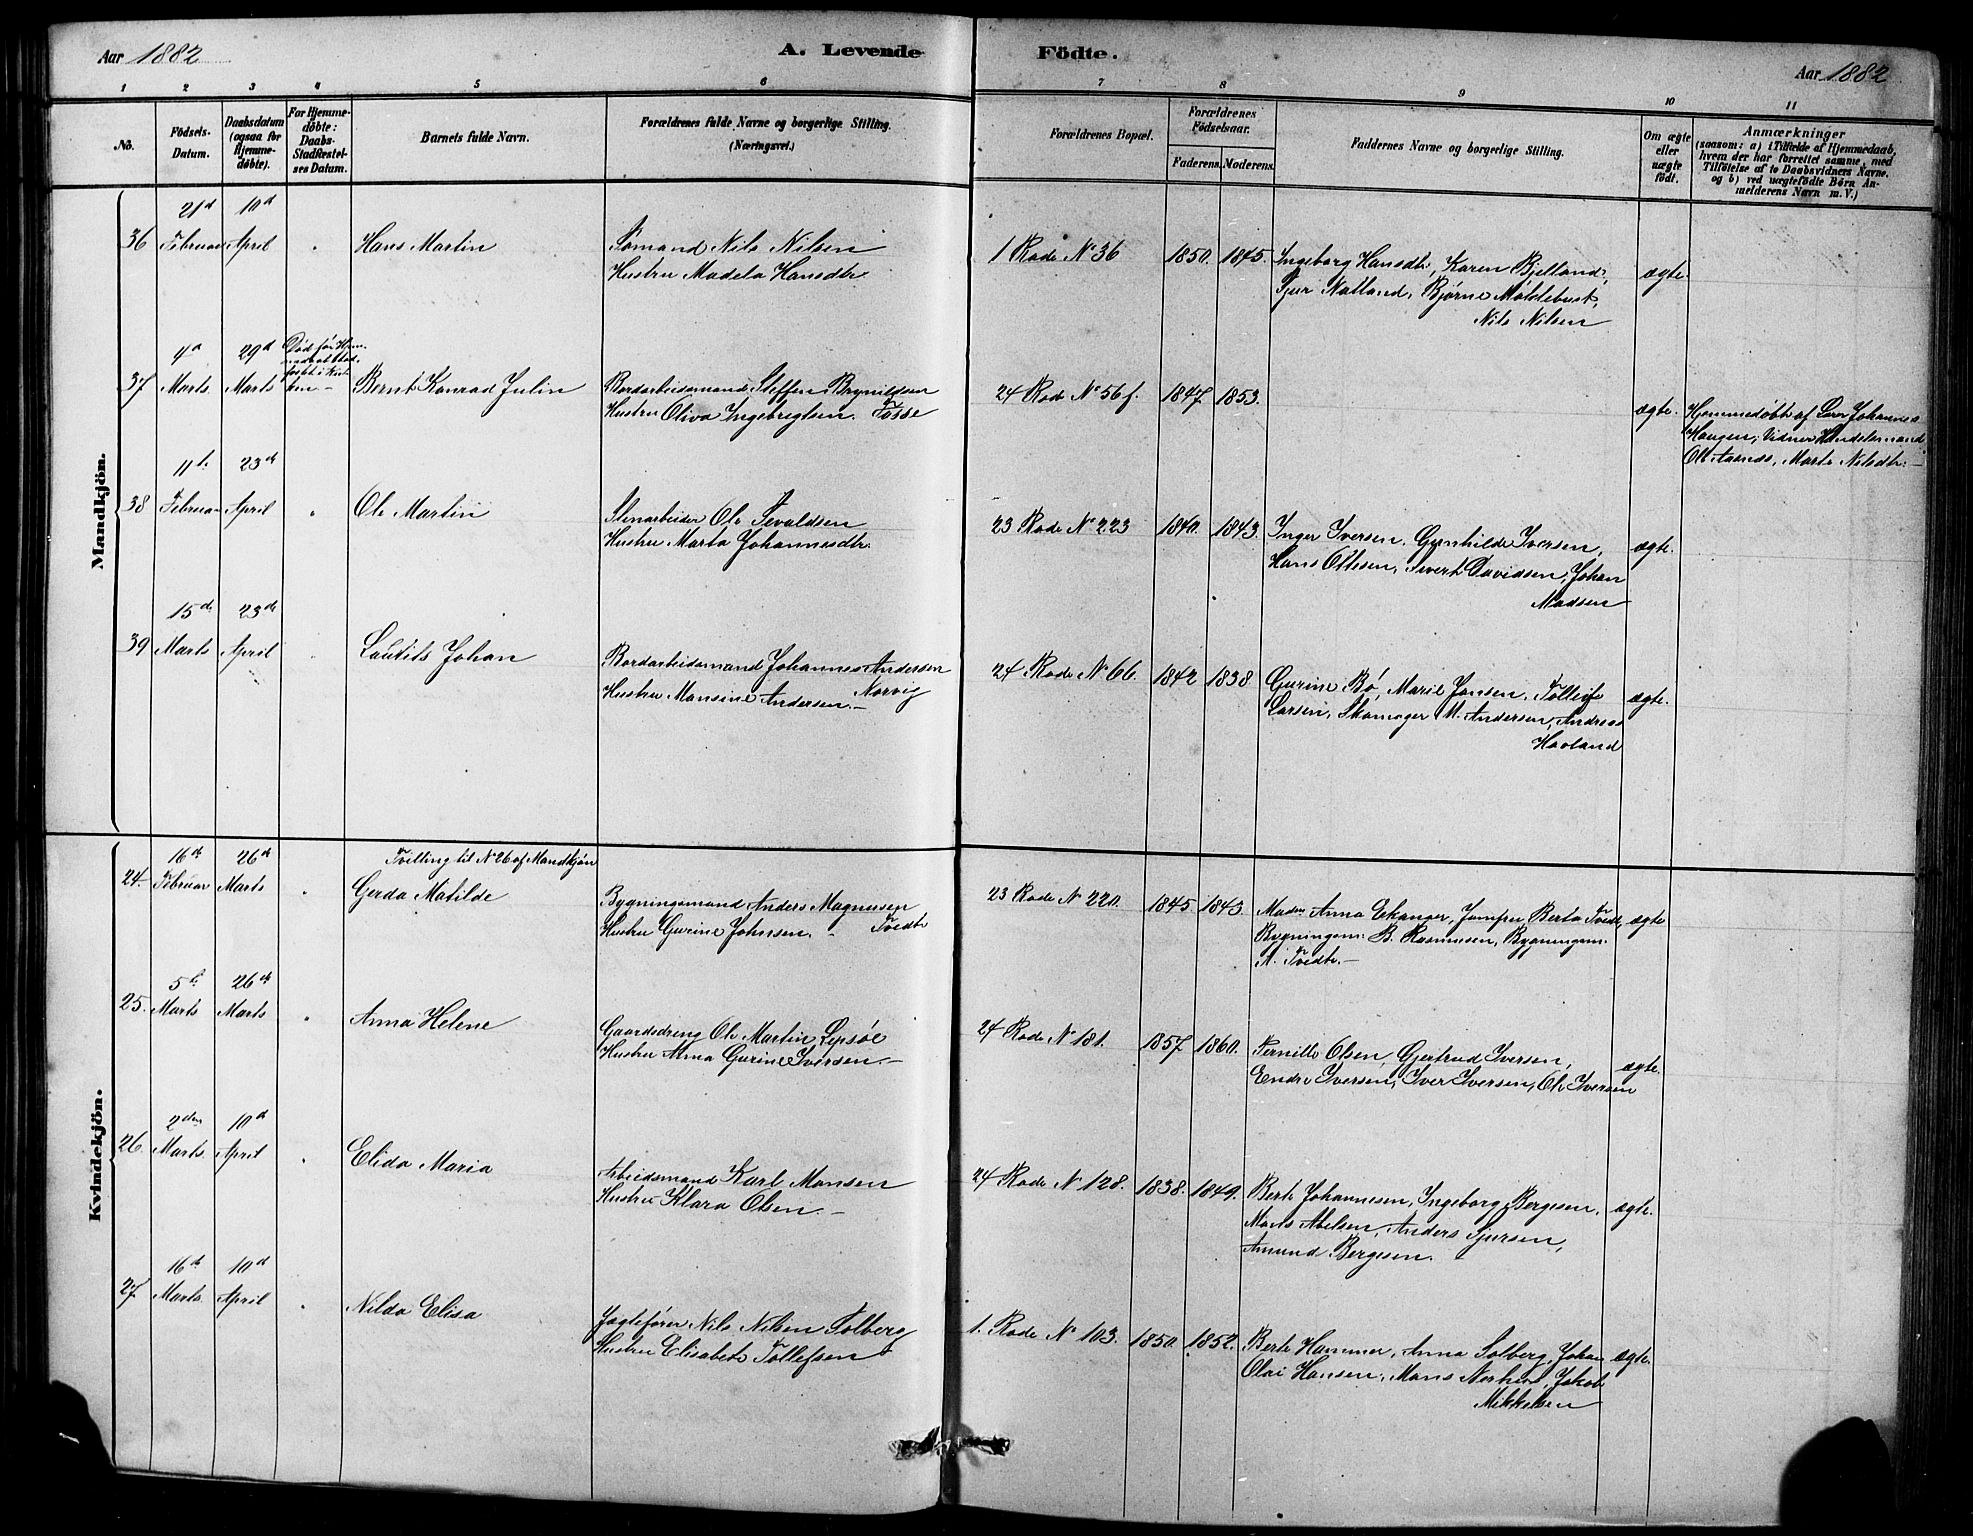 Aar 1882
A. Levende
Födte.
Aar 1882
1 2 3 4 5 6 7 8 9 10 11
No.
Födsels-
Datum.
Daabsdatum
(ogsaa for
Hjemme-
döbte).
For Hjemme-
döbte:
Daabs-
Stadfæstel-
ses Datum.
Barnets fulde Navn.
Forældrenes fulde Navne og borgerlige Stilling.
(Næringsvei.)
Forældrenes Bopæl.
Forældrenes
Födselsaar.
Faderens. Moderens.
Faddernes Navne og borgerlige Stilling.
Om ægte
eller
uægte
födt.
Anmærkninger
(saasom: a) i Tilfælde af Hjemmedaab,
hvem der har forrettet samme, med
Tilföielse af to Daabsvidners Navne.
og b) ved uægtefödte Börn An-
melderens Navn m. V.)
Mandkjön.
21d 10d
36 Februar April " Hans Martin
Sømand Nils Nilsen
Hustru Madela Hansdtr.
1 Rode No 36 1850. 1845.
Ingeborg Hansdtr, Karen Bjelland,
Sjur Natland, Bjørne Moldebust,
Nils Nilsen
ægte.
4d 29d
37 Marts Marts
Død før
Bernt Konrad Julin
Bordarbeidsmand Steffen Brynildsen
Hustru Oliva Ingebrigtsen. Fosse
24 Rode No 56 f. 1847. 1853.
ægte.
Hjemmedøbt af Lærer Johannes
Haugen; Vidner Handelsmand
Ole Aarnæs, Marta Nilsdtr. —
11te 23de
38 Februar April " Ole Martin
Stenarbeider Ole Sevaldsen
Hustru Marta Johannesdtr.
23 Rode No 223 1840. 1843.
Inger Iversen, Gunhilde Iversen,
Hans Ottesen, Sivert Davidsen, Johan
Madsen
ægte.
15de 23de
39 Marts April " Lautits Johan
Bordarbeidsmand Johannes Andersen
Norvig
Hustru Monsine Andersen. —
24 Rode No 66. 1842 1838
Gurine Bø, Marie Jansen, Tolleif
Larsen, Skomager M. Andersen, Andreas
Havland
ægte.
Kvindekjön.
16de 26de Tvilling til No 26 af Mandkjøn
24. Februar Marts " Gerda Matilde
Bygningsmand Anders Magnusen
Tvedt
Hustru Gurine Johnsen. -
23 Rode No 220. 1845. 1843.
Madm Anna Ekanger, Jomfru Berta Tvedt,
Bygningsm. B. Rasmusen, Bygningsm.
A. Tvedt. —
ægte
5te 26de
25. Marts Marts " Anna Helene
Gaardsdreng Ole Martin Lepsøe
Hustru Anna Gurine Iversen. —
24 Rode No 181. 1857 1860.
Pernille Olsen, Gjertrud Iversen,
Endre Iversen, Iver Iversen, Ole Iversen
ægte.
2den 10d
26. Marts. April " Elida Maria
Arbeidsmand Karl Monsen
Hustru Klara Olsen. —
24 Rode No 128. 1838. 1849.
Berte Johannesen, Ingeborg Bergesen,
Mons Abelsen, Anders Sjursen,
Amund Bergesen.
ægte.
16de 10d
27. Marts. April " Nilda Elisa
Jægtefører Nils Nilsen Solberg
Hustru Elisabeth Tollefsen
1. Rode No 103. 1850. 1852.
Berte Hammer, Anna Solberg, Johan
Olai Hansen, Mons Nerhen, Jakob
Mikkelsen
ægte.